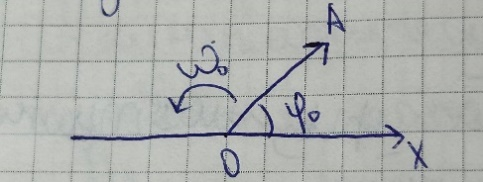 A
ω₀
φ₀
O
X